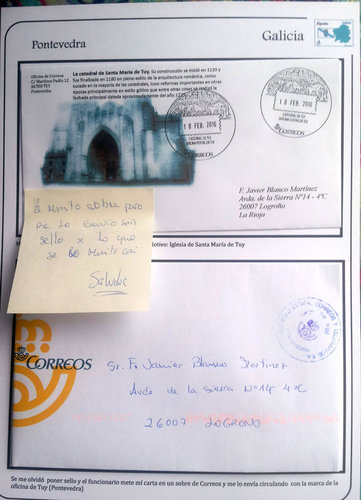 Pontevedra
Galicia
España
Oficina de Correos
C/ Martínez Padín 12
36700 TUY
Pontevedra
La catedral de Santa María de Tuy. Su construcción se inició en 1120 y
fue finalizada en 1180 en pleno estilo de la arquitectura románica, como
sucede en la mayoría de las catedrales, tuvo reformas importantes en otras
épocas principalmente en estilo gótico que entre otras cosas se realizó la
fachada principal datada aproximadamente del año
10 FEB. 2016
CATEDRAL DE TUI
OFICINA POSTAL DE TUI
CORREOS
10 FEB. 2016
CATEDRAL DE TUI
OFICINA POSTAL DE TUI
CORREOS
F. Javier Blanco Martínez
Avda. de la Sierra Nº14 - 4ºC
26007 Logroño
La Rioja
remito sobre pero
me lo envio sin
sello x lo que
se lo remito así
Saludos
Motivo: Iglesia de Santa María de Tuy
CORREOS
Sr. F. Javier Blanco Martinez
Avda de la Sierra Nº14 4ºC
26007 LOGROÑO
Se me olvidó poner sello y el funcionario mete mi carta en un sobre de Correos y me lo envía circulando con la marca de la
oficina de Tuy (Pontevedra)